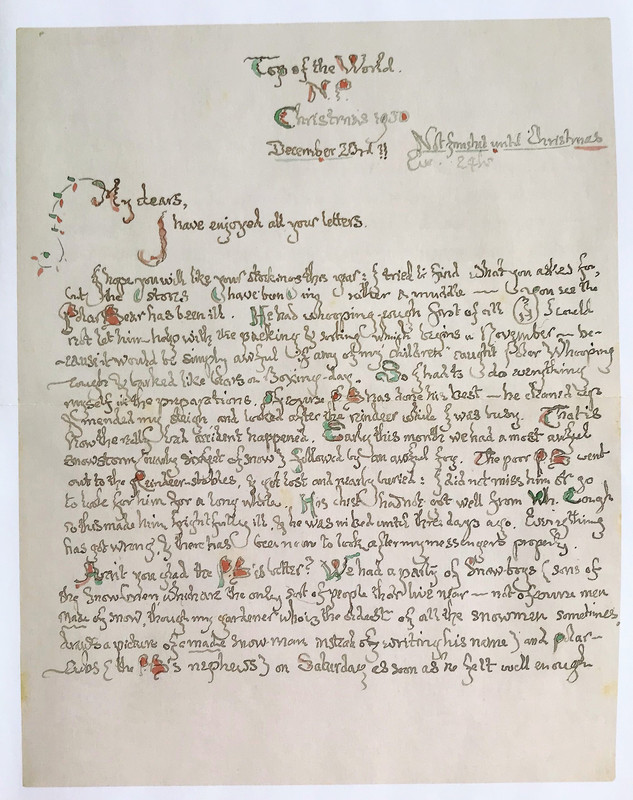 Top of the World.
N.P.
Christmas 1930
December 23rd !!
Not finished until Christmas
Eve. 24th
My dears,
I have enjoyed all your letters.
I hope you will like your stockings this year: I tried to find what you asked for,
but the stores have been in rather a muddle — you see the
Polar Bear has been ill. He had whooping-cough first of all. I could
not let him help with the packing & sorting which begins in November — be-
-cause it would be simply awful if any of my children caught Polar Whooping
-cough & barked like bears on Boxing-day. So I had to do everything
myself in the preparations. Of course PB has done his best — he cleaned up
& mended my sleigh and looked after the reindeer while I was busy. That is
how the really bad accident happened. Early this month we had a most awful
snowstorm (nearly six feet of snow) followed by an awful fog. The poor PB went
out to the Reindeer-stables, & got lost and nearly buried: I did not miss him or go
to look for him for a long while. His chest had not got well from Wh. Cough
so this made him frightfully ill, & he was in bed until three days ago. Everything
has got wrong, & there has been no one to look after my messengers properly.
Aren't you glad the PB is better? We had a party of Snowboys (sons of
the Snowmen, which are the only sort of people that live near — not of course men
made of snow, though my gardener who is the oldest of all the snowmen sometimes
draws a picture of a made snow-man instead of writing his name) and Polar-
-cubs (the PB's nephews) on Saturday as soon as he felt well enough.